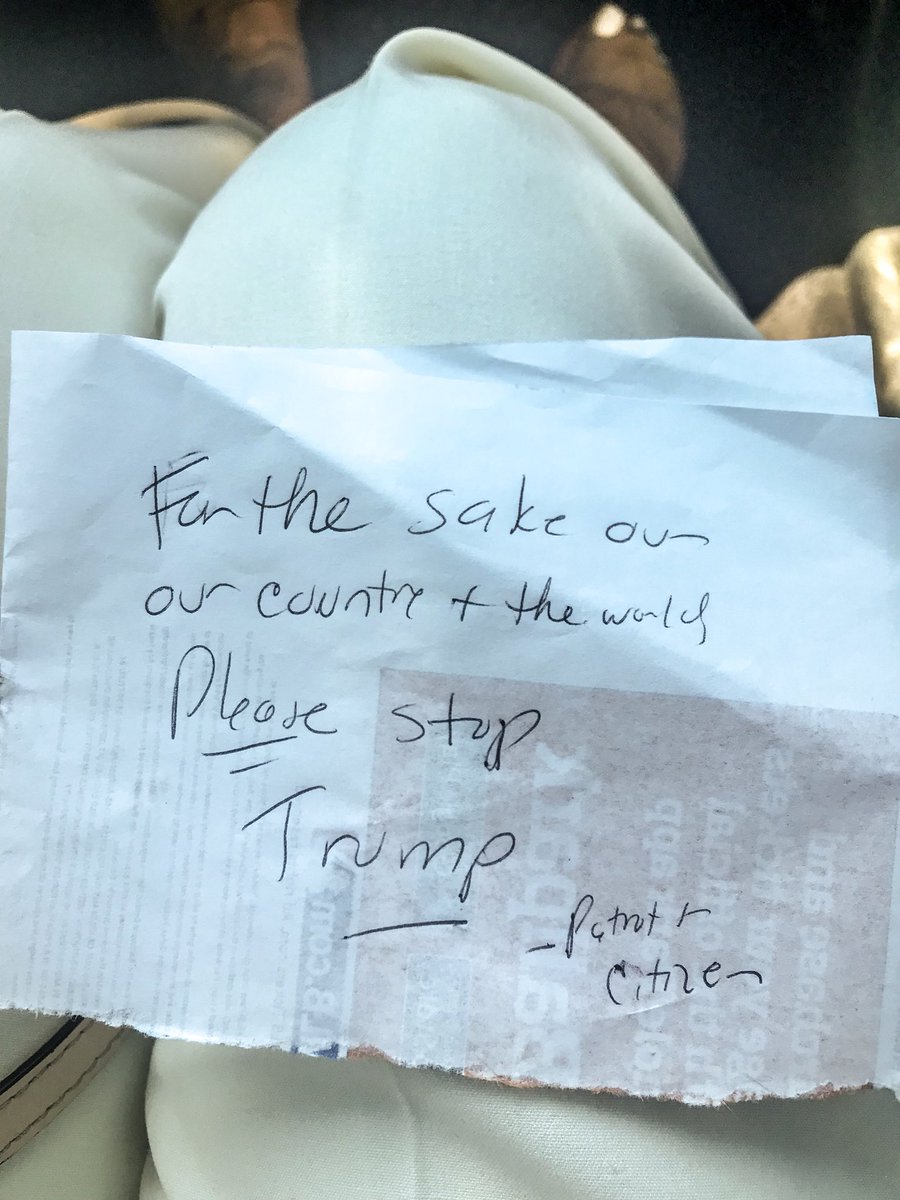 For the sake our
our country + the world
Please stop
Trump
- Patriot +
Citizen